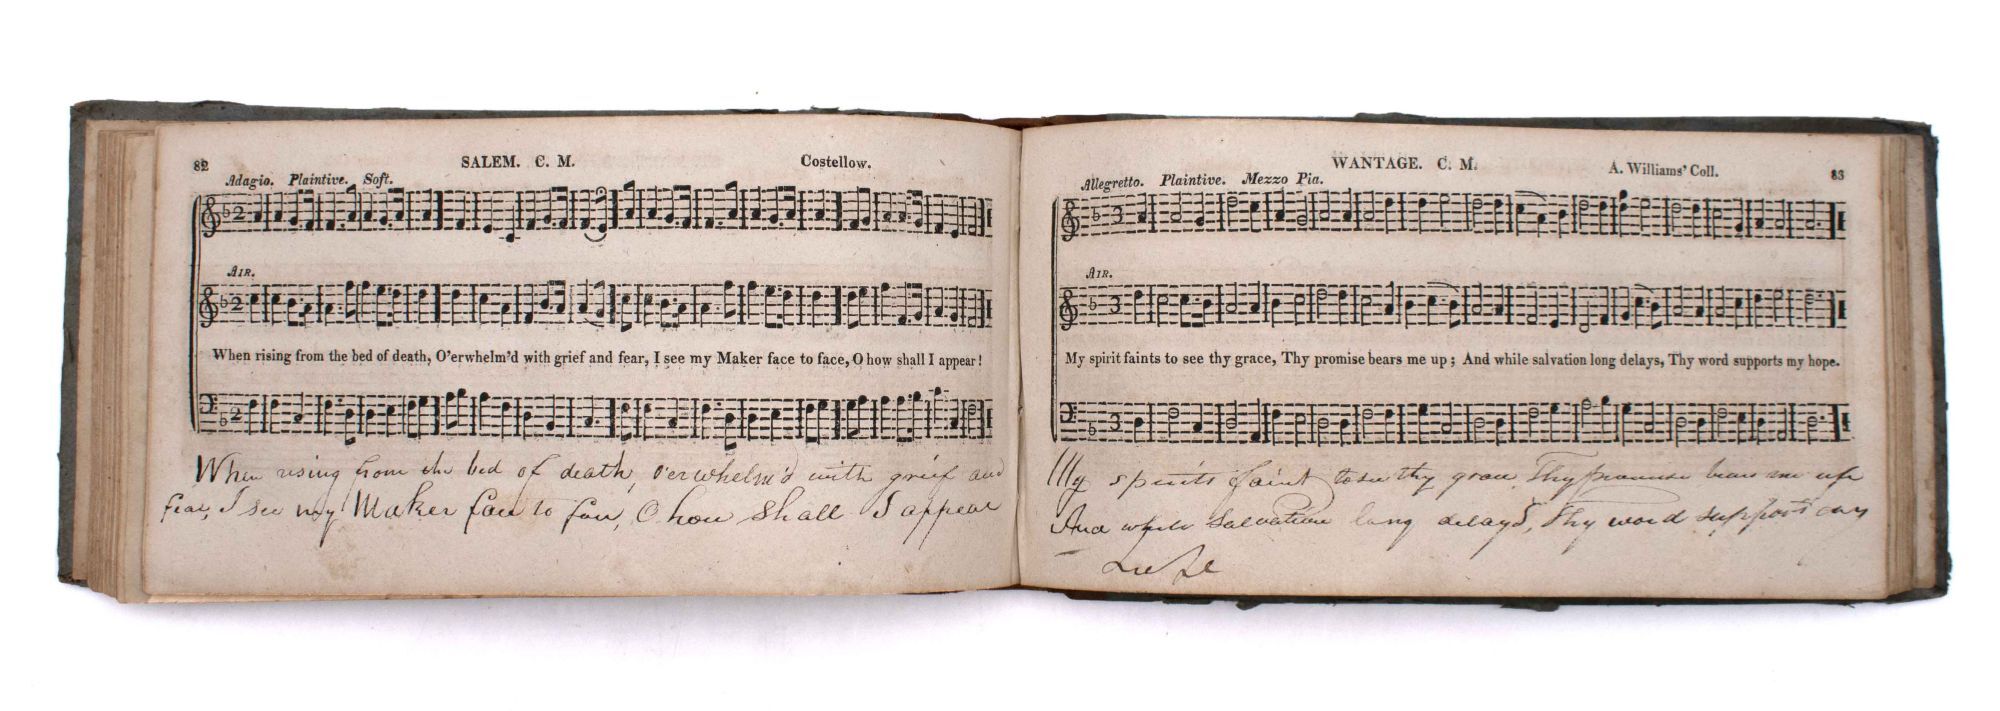 82
SALEM. C. M.
Costellow.
Adagio. Plaintive. Soft.
AIR.
When rising from the bed of death, O'erwhelm'd with grief and fear, I see my Maker face to face, O how shall I appear!
When rising from the bed of death, o'erwhelm'd with grief and
fear, I see my Maker face to face, O how shall I appear
WANTAGE. C. M.
A. Williams' Coll.
83
Allegretto. Plaintive. Mezzo Pia.
AIR.
My spirit faints to see thy grace, Thy promise bears me up; And while salvation long delays, Thy word supports my hope.
My spirits faint to see thy grace, Thy promise bears me up
And while salvation long delays, Thy word supports my